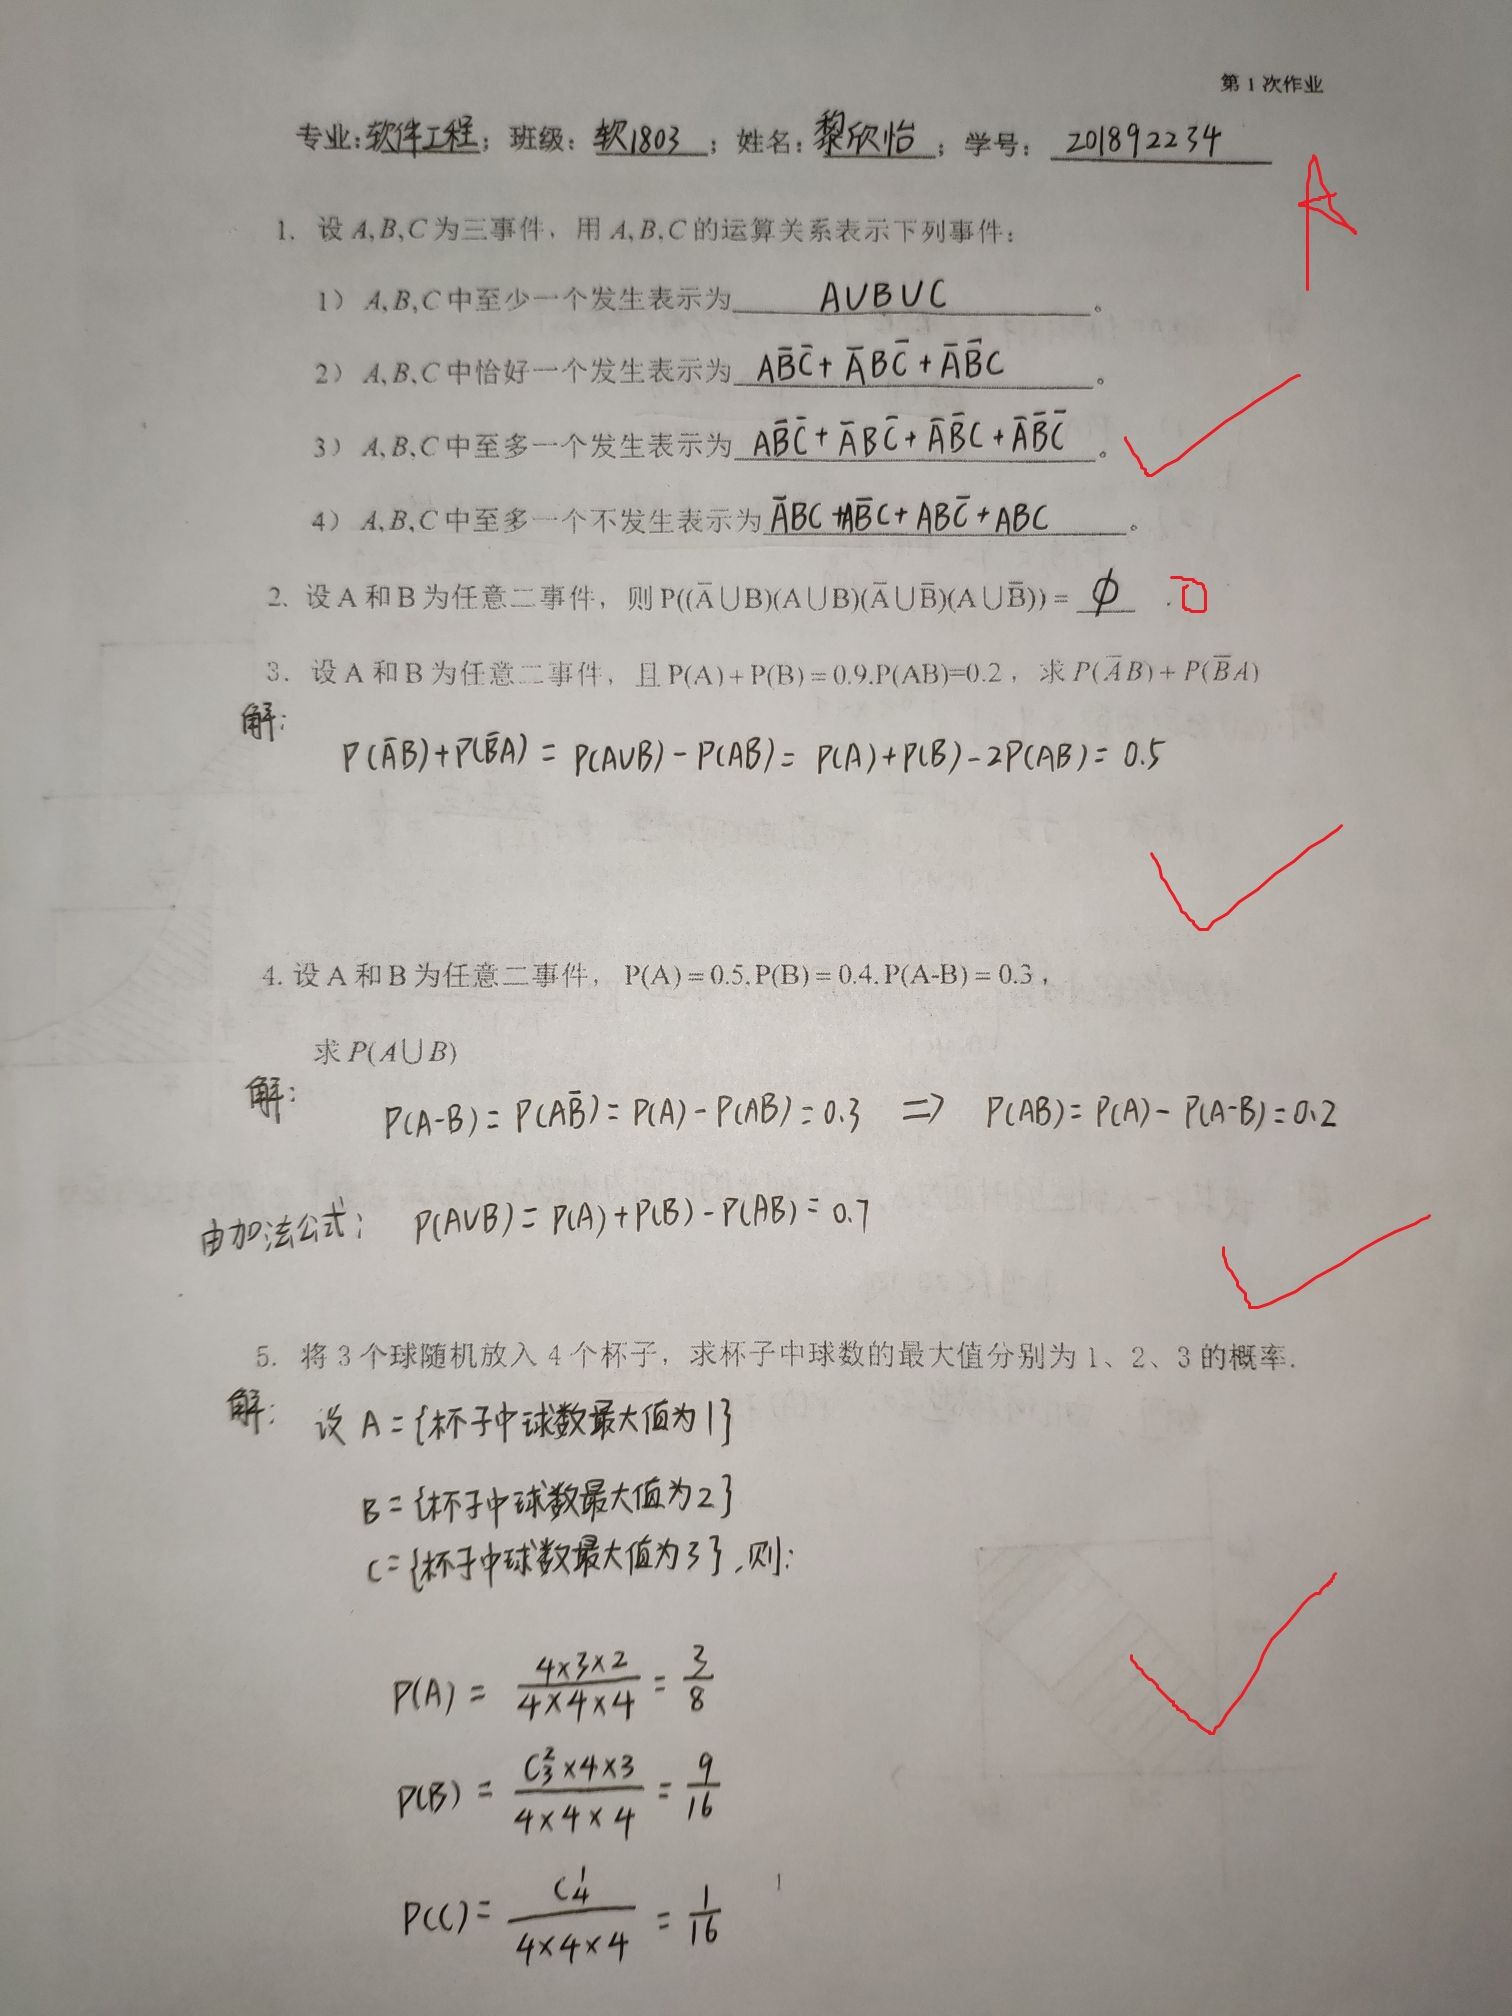 第 1 次作业
专业:软件工程; 班级: 软1803 ; 姓名: 黎欣怡 ; 学号: 201892234
A
1. 设 A,B,C 为三事件，用 A,B,C 的运算关系表示下列事件：
1） A,B,C 中至少一个发生表示为 A∪B∪C 。
2） A,B,C 中恰好一个发生表示为 AB̅C̅ + A̅BC̅ + A̅B̅C 。
3） A,B,C 中至多一个发生表示为 AB̅C̅ + A̅BC̅ + A̅B̅C + A̅B̅C̅ 。
4） A,B,C 中至多一个不发生表示为 A̅BC + AB̅C + ABC̅ + ABC 。
2. 设 A 和 B 为任意二事件，则 P((A̅∪B)(A∪B)(A̅∪B̅)(A∪B̅)) = ϕ . 0
3. 设 A 和 B 为任意二事件，且 P(A) + P(B) = 0.9.P(AB)=0.2，求 P(A̅B) + P(B̅A)
解:
P(A̅B)+P(B̅A) = P(A∪B) - P(AB) = P(A)+P(B) - 2P(AB) = 0.5
4. 设 A 和 B 为任意二事件， P(A) = 0.5.P(B) = 0.4.P(A-B) = 0.3，
求 P(A∪B)
解:
P(A-B) = P(AB̅) = P(A) - P(AB) = 0.3 => P(AB) = P(A) - P(A-B) = 0.2
由加法公式: P(A∪B) = P(A)+P(B) - P(AB) = 0.7
5. 将 3 个球随机放入 4 个杯子，求杯子中球数的最大值分别为 1、2、3 的概率.
解: 设 A = {杯子中球数最大值为1}
B = {杯子中球数最大值为2}
C = {杯子中球数最大值为3}, 则:
P(A) = 4×3×2 / 4×4×4 = 3/8
P(B) = C₃²×4×3 / 4×4×4 = 9/16
P(C) = C₄¹ / 4×4×4 = 1/16